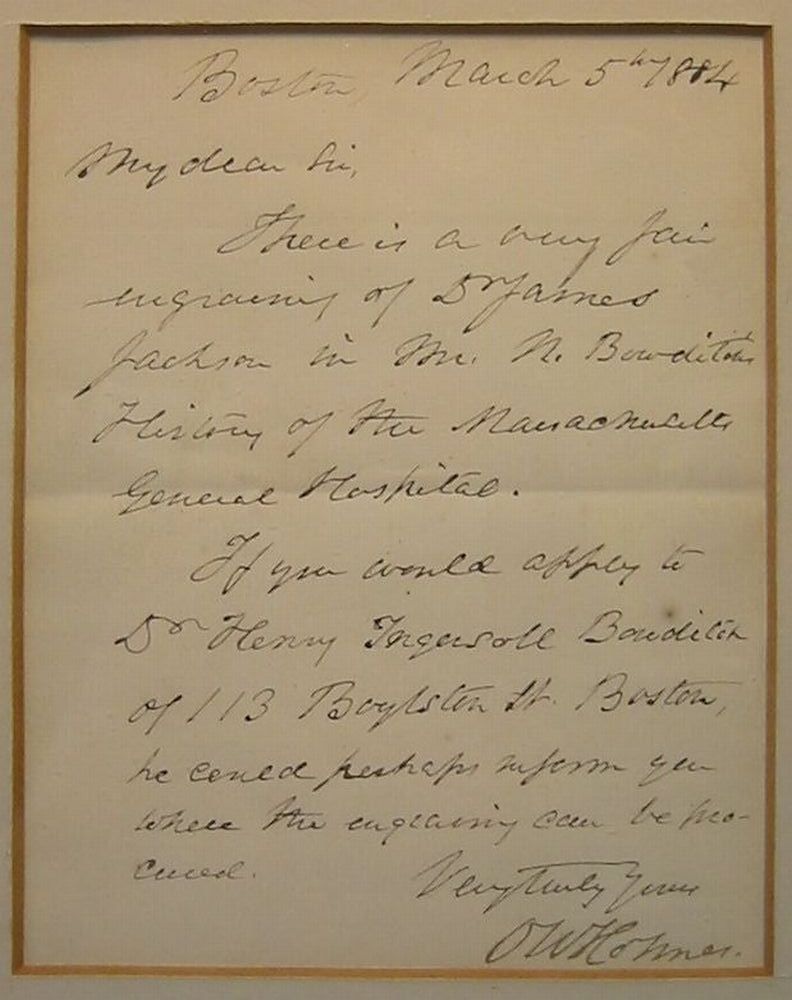 Boston, March 5th 1884
My dear Sir,
There is a very fair
engraving of Dr James
Jackson in Mr. N. Bowditch's
History of the Massachusetts
General Hospital.
If you would apply to
Dr Henry Ingersoll Bowditch
of 113 Boylston St. Boston,
he could perhaps inform you
where the engraving can be pro-
cured.
Very truly Yours
O W Holmes.